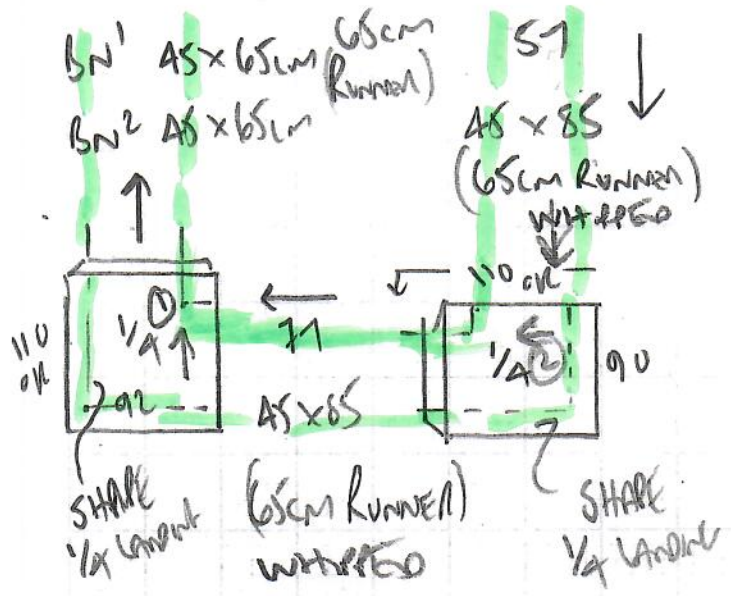 BN¹ 45×65cm (65cm Runner)
BN² 45×65cm
57
45×85
(65cm Runner)
WHIPPED
110
OK
①
1/4
92
110
OK
71
45×85
1/4 ②
90
SHAPE
1/4 LANDING
(65cm RUNNER)
WHIPPED
SHAPE
1/4 LANDING